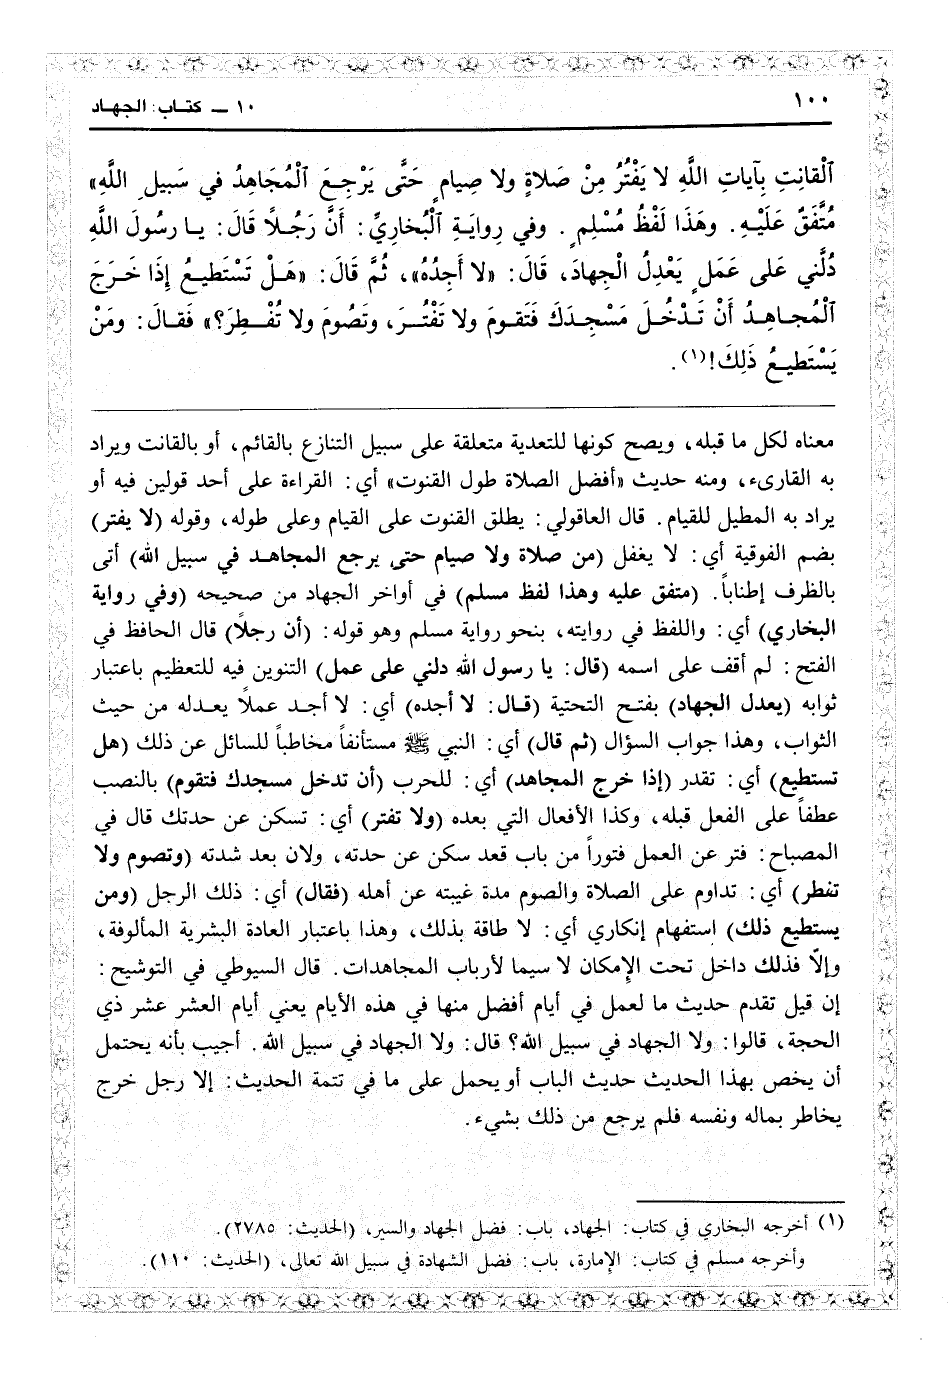 ١٠٠
١٠ ـ كتاب: الجهاد
ٱلْقانِتِ بِآياتِ اللَّهِ لا يَفْتُرُ مِنْ صَلاةٍ ولا صِيامٍ حَتَّى يَرْجِعَ ٱلْمُجَاهِدُ في سَبيلِ اللَّهِ»
مُتَّفَقٌ عَلَيْهِ. وهَذَا لَفْظُ مُسْلِمٍ. وفي رِوايَةِ ٱلْبُخارِيِّ: أَنَّ رَجُلاً قَالَ: يا رسُولَ اللَّهِ
دُلَّني عَلى عَمَلٍ يَعْدِلُ الْجِهادَ، قَالَ: «لا أَجِدُهُ»، ثُمَّ قَالَ: «هَلْ تَسْتَطيعُ إِذَا خَرَجَ
ٱلْمُجاهِدُ أَنْ تَدْخُلَ مَسْجِدَكَ فَتَقومَ ولا تَفْتُرَ، وتَصُومَ ولا تُفْطِرَ؟» فَقالَ: ومَنْ
يَسْتَطيعُ ذَلِكَ!(١).
معناه لكل ما قبله، ويصح كونها للتعدية متعلقة على سبيل التنازع بالقائم، أو بالقانت ويراد
به القارىء، ومنه حديث «أفضل الصلاة طول القنوت» أي: القراءة على أحد قولين فيه أو
يراد به المطيل للقيام. قال العاقولي: يطلق القنوت على القيام وعلى طوله، وقوله (لا يفتر)
بضم الفوقية أي: لا يغفل (من صلاة ولا صيام حتى يرجع المجاهد في سبيل الله) أتى
بالظرف إطناباً. (متفق عليه وهذا لفظ مسلم) في أواخر الجهاد من صحيحه (وفي رواية
البخاري) أي: واللفظ في روايته، بنحو رواية مسلم وهو قوله: (أن رجلا) قال الحافظ في
الفتح: لم أقف على اسمه (قال: يا رسول الله دلني على عمل) التنوين فيه للتعظيم باعتبار
ثوابه (يعدل الجهاد) بفتح التحتية (قال: لا أجده) أي: لا أجد عملاً يعدله من حيث
الثواب، وهذا جواب السؤال (ثم قال) أي: النبي ﷺ مستأنفاً مخاطباً للسائل عن ذلك (هل
تستطيع) أي: تقدر (إذا خرج المجاهد) أي: للحرب (أن تدخل مسجدك فتقوم) بالنصب
عطفاً على الفعل قبله، وكذا الأفعال التي بعده (ولا تفتر) أي: تسكن عن حدتك قال في
المصباح: فتر عن العمل فتوراً من باب قعد سكن عن حدته، ولان بعد شدته (وتصوم ولا
تفطر) أي: تداوم على الصلاة والصوم مدة غيبته عن أهله (فقال) أي: ذلك الرجل (ومن
يستطيع ذلك) استفهام إنكاري أي: لا طاقة بذلك، وهذا باعتبار العادة البشرية المألوفة،
وإلاّ فذلك داخل تحت الإمكان لا سيما لأرباب المجاهدات. قال السيوطي في التوشيح:
إن قيل تقدم حديث ما لعمل في أيام أفضل منها في هذه الأيام يعني أيام العشر عشر ذي
الحجة، قالوا: ولا الجهاد في سبيل الله؟ قال: ولا الجهاد في سبيل الله. أجيب بأنه يحتمل
أن يخص بهذا الحديث حديث الباب أو يحمل على ما في تتمة الحديث: إلا رجل خرج
يخاطر بماله ونفسه فلم يرجع من ذلك بشيء.
(١) أخرجه البخاري في كتاب: الجهاد، باب: فضل الجهاد والسير، (الحديث: ٢٧٨٥).
وأخرجه مسلم في كتاب: الإمارة، باب: فضل الشهادة في سبيل الله تعالى، (الحديث: ١١٠).